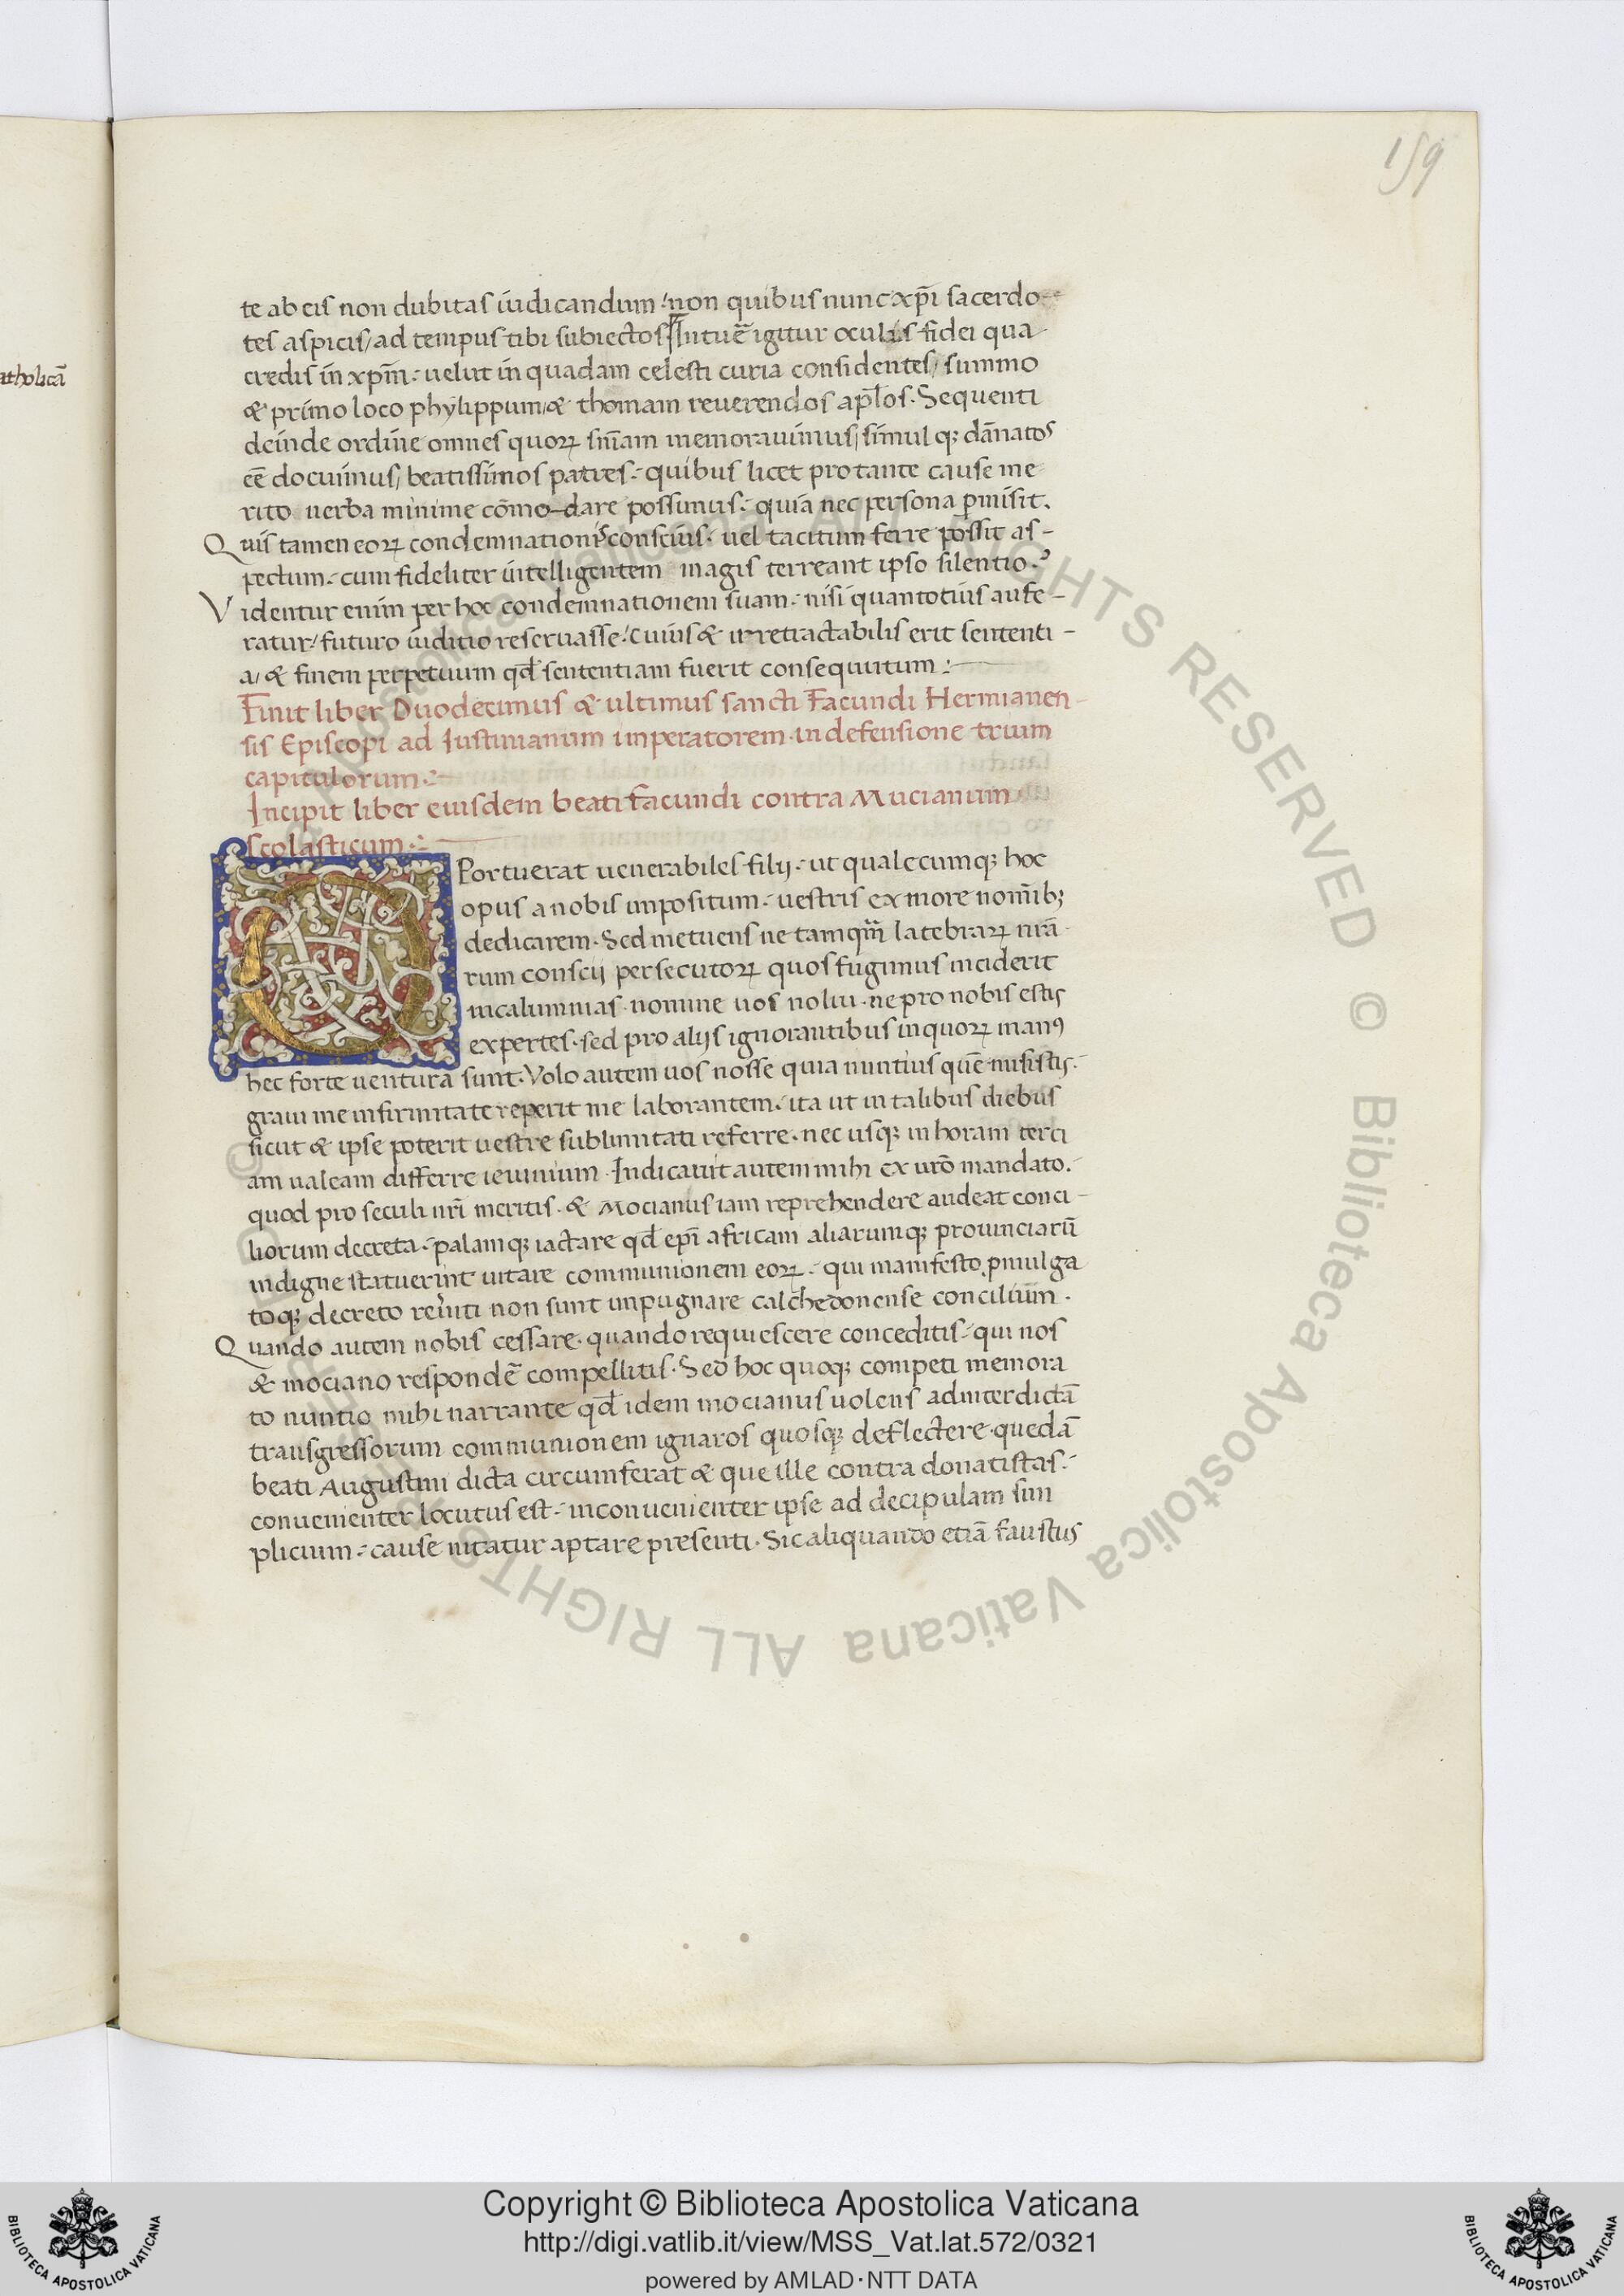 159
atholicā
te ab eis non dubitas iudicandum / non quibus nunc xp̄i sacerdo-
tes aspicis / ad tempus tibi subiectos Intuē igitur oculis fidei qua
credis in xp̄m .- uelut in quadam celesti curia considentes / summo
& primo loco phylippum / & thomam reuerendos apl̄os. Sequenti
deinde ordine omnes quoꝝ sn̄iam memorauimus / simul qꝫ dānatos
eē docuimus / beatissimos patres .- quibus licet pro tante cause me
rito uerba minime cōmo-dare possumus .- quia nec persona ꝑmisit.
Quis tamen eoꝝ condemnationis conscius .- uel tacitum ferre possit as-
pectum .- cum fideliter intelligentem magis terreant ipso silentio ?
Videntur enim per hoc condemnationem suam .- nisi quantotius aufe-
ratur / futuro iuditio reseruasse / Cuius & irretractabilis erit sententi-
a / & finem perpetuum qd̄ sententiam fuerit consequutum :-
Finit liber Duodecimus & ultimus sancti Facundi Hermianen-
sis Episcopi ad Iustinianum imperatorem in defensione trium
capitulorum :-
Incipit liber eiusdem beati facundi contra Mucianum
scolasticum :-
OPortuerat uenerabiles filij .- ut qualecumqꝫ hoc
opus a nobis impositum .- uestris ex more nomībꝫ
dedicarem. Sed metuens ne tamqm̄ latebraꝝ nrā-
rum conscij persecutoꝝ quos fugimus inciderit
in calumnias. nomine uos nolui. ne pro nobis estis
expertes. sed pro alijs ignorantibus in quoꝝ manꝰ
hec forte uentura sunt. Volo autem uos nosse quia nuntius quē misistis .-
graui me infirmitate reperit me laborantem .- ita ut in talibus diebus
sicut & ipse poterit uestre sublimitati referre. nec usqꝫ in horam terci
am ualeam differre ieiunium. Indicauit autem mihi ex urō mandato .-
quod pro seculi nrī meritis. & Mocianus iam reprehendere audeat conci-
liorum decreta .- palamqꝫ iactare qd̄ epī africam aliarumqꝫ prouinciarū
indigne statuerint uitare communionem eoꝝ .- qui manifesto ꝓmulga
toqꝫ decreto reuiti non sunt impugnare calchedonense concilium.
Quando autem nobis cessare. quando requiescere conceditis .- qui nos
& mociano respondē compellitis. Sed hoc quoqꝫ competi memora
to nuntio mihi narrante qd̄ idem mocianus uolens ad interdictā
transgressorum communionem ignaros quosqꝫ deflectere. quedā
beati Augustini dicta circumferat & que ille contra donatistas .-
conuenienter locutus est .- inconuenienter ipse ad decipulam sim
plicium .- cause nitatur aptare presenti. Sic aliquando etiā faustus
© Biblioteca Apostolica Vaticana ALL RIGHTS RESERVED © Biblioteca Apostolica Vaticana ALL RIGHTS RESERVED
BIBLIOTECA APOSTOLICA VATICANA
Copyright © Biblioteca Apostolica Vaticana
http://digi.vatlib.it/view/MSS_Vat.lat.572/0321
powered by AMLAD·NTT DATA
BIBLIOTECA APOSTOLICA VATICANA